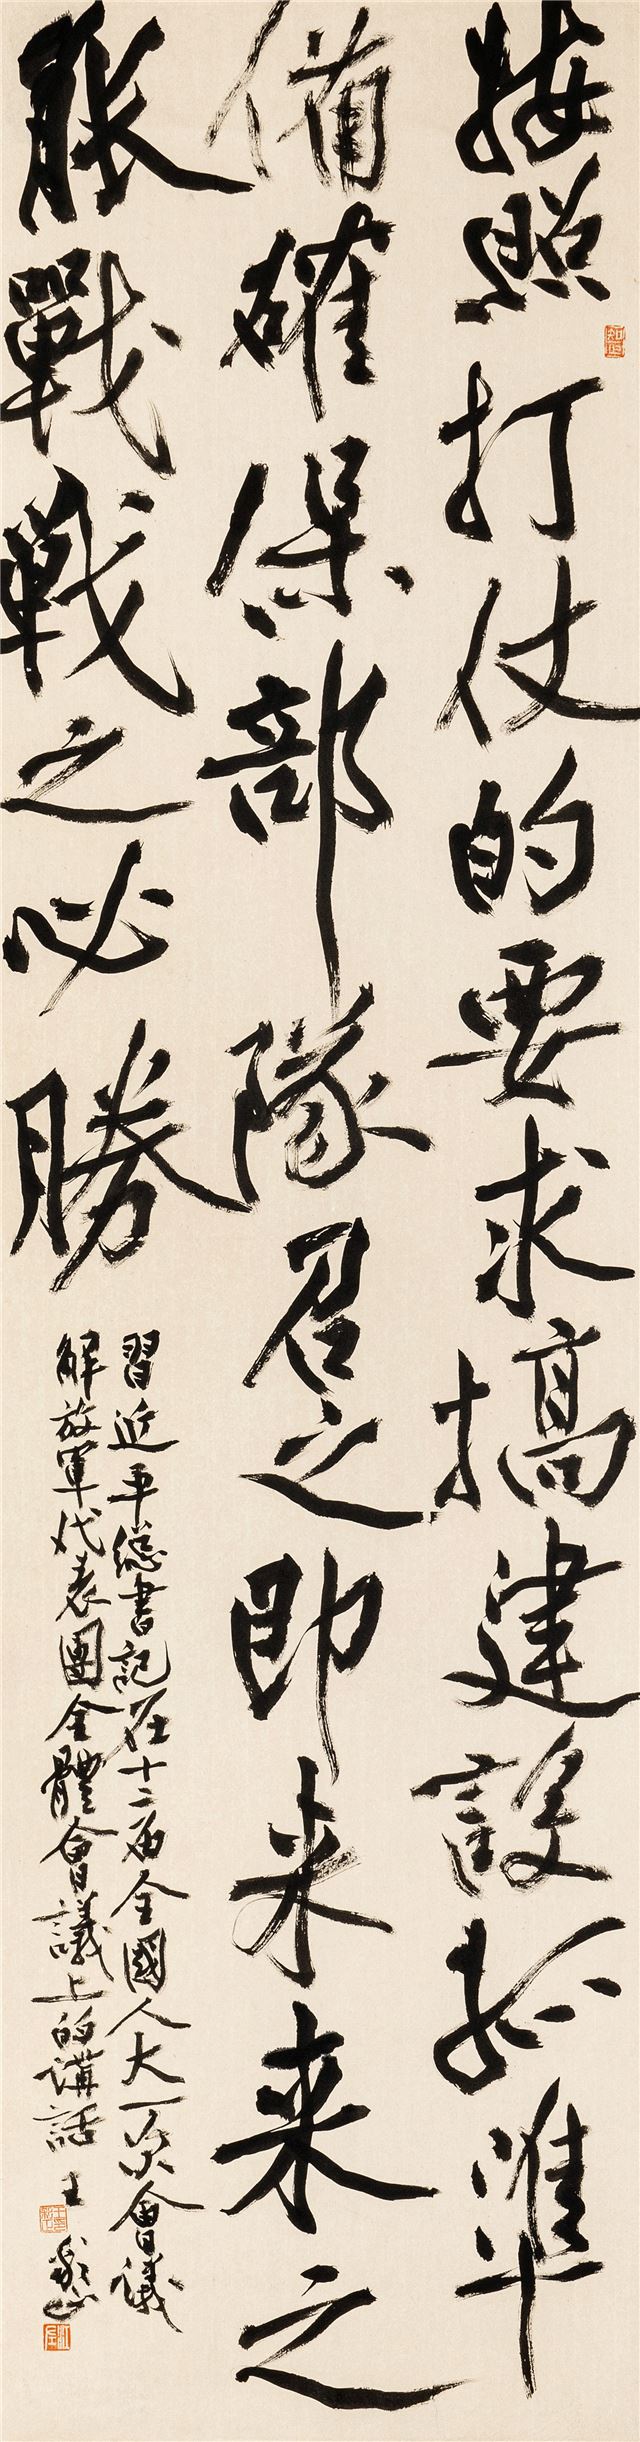 按照打仗的要求搞建設抓準
備確保部隊召之即来来之
能戰戰之必勝
習近平總書記在十二届全國人大一次會議
解放軍代表團全體會議上的講話 王